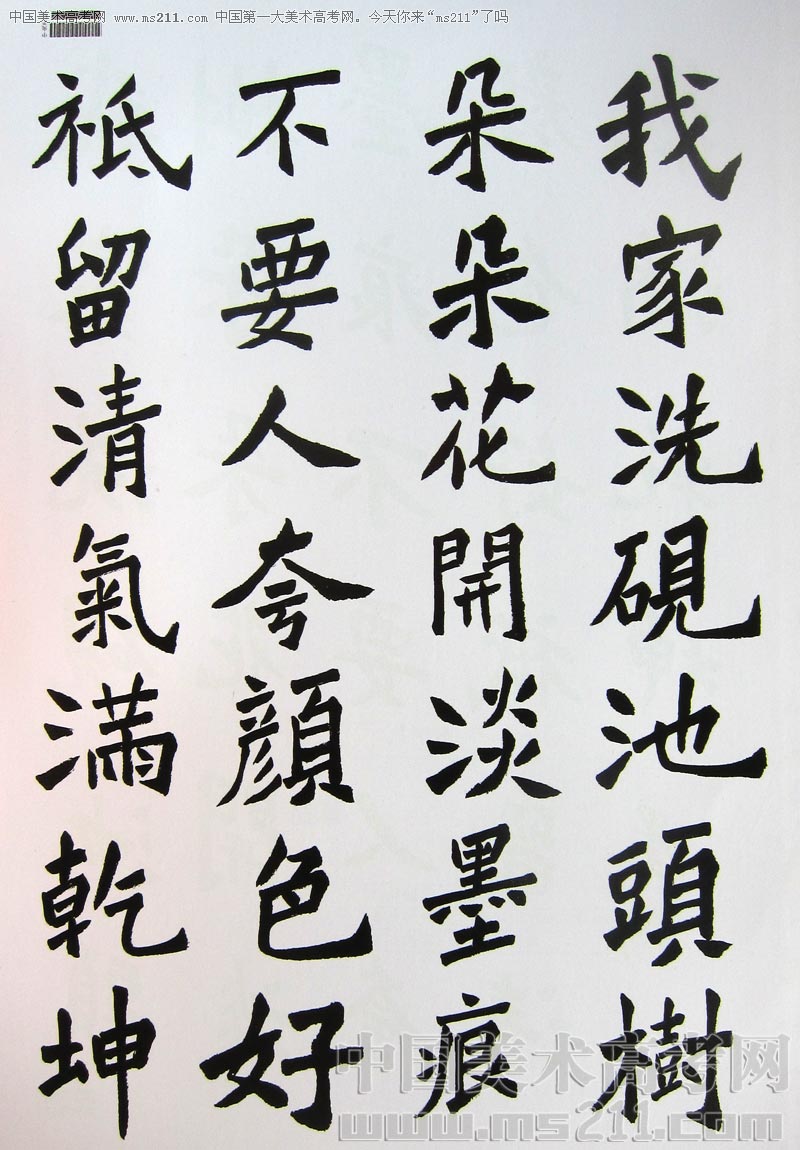 中国美术高考网 www.ms211.com 中国第一大美术高考网。今天你来“ms211”了吗
我家洗硯池頭樹
朵朵花開淡墨痕
不要人夸顏色好
祗留清氣滿乾坤
中国美术高考网
www.ms211.com